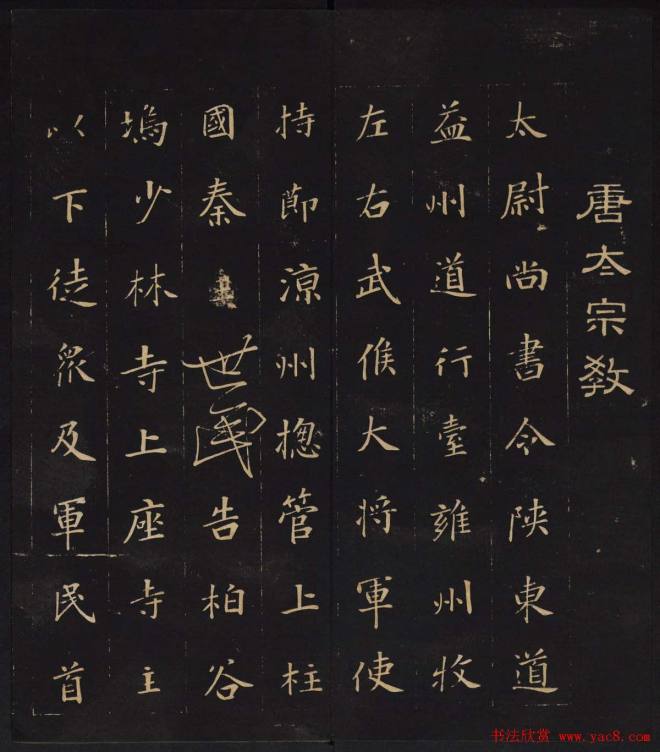 唐太宗教
太尉尚書令陝東道
益州道行臺雍州牧
左右武候大將軍使
持節涼州揔管上柱
國秦王世民告柏谷
塢少林寺上座寺主
以下徒眾及軍民首
书法欣赏 www.yac8.com